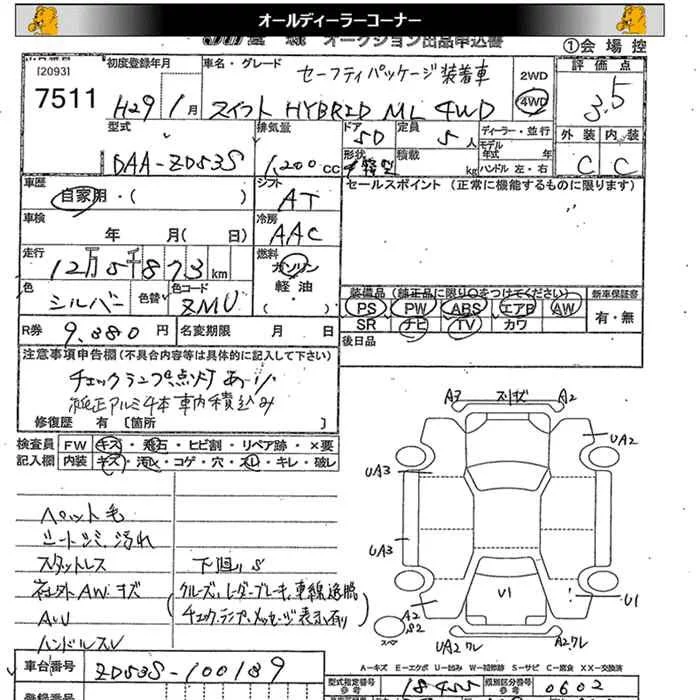 オールディーラーコーナー
オークション出品申込書
①会場控
[2093]
7511
初度登録年月
H29年1月
車名・グレード
セーフティパッケージ装着車
スイフト HYBRID ML 4WD
2WD
4WD
評価点
3.5
型式
DAA-ZD53S
排気量
1,200cc
ドア
5D
定員
5人
形状
積載
kg
ディーラー・並行
モデル年式 年
ハンドル 左・右
外装 内装
C C
車歴
自家用・( )
シフト
AT
セールスポイント(正常に機能するものに限ります)
車検
年 月( 日)
冷房
AAC
走行
12万5千873km
燃料
ガソリン
軽油
( )
色
シルバー
色替
色コード
ZMU
装備品(純正品に限り○をつけてください)
PS PW ABS エアB AW
SR ナビ TV カワ
新車保証書
有・無
R券
9,880円
名変期限 月 日
後日品
注意事項申告欄(不具合内容等は具体的に記入して下さい)
チェックランプ点灯あり
純正アルミ4本車内積込み
修復歴 有[箇所 ]
検査員記入欄
FW キズ・飛石・ヒビ割・リペア跡・×要
内装 キズ・汚レ・コゲ・穴・スレ・キレ・破レ
ペット毛
シートシミ汚れ
スタットレス
社外AWキズ
AW
ハンドルスレ
下廻りS
(クルーズ、レーダーブレーキ、車線逸脱
チェックランプ、メッセージ表示有り)
A3
A2
UA2
UA3
UA3
V1
U1
A2
S2
スペア
UA2ワレ
A2ワレ
A-キズ E-エクボ U-凹み W-補修跡 S-サビ C-腐食 XX-交換済
車台番号
ZD53S-100189
登録番号
型式指定番号
参考
18455
類別区分番号
参考
0602